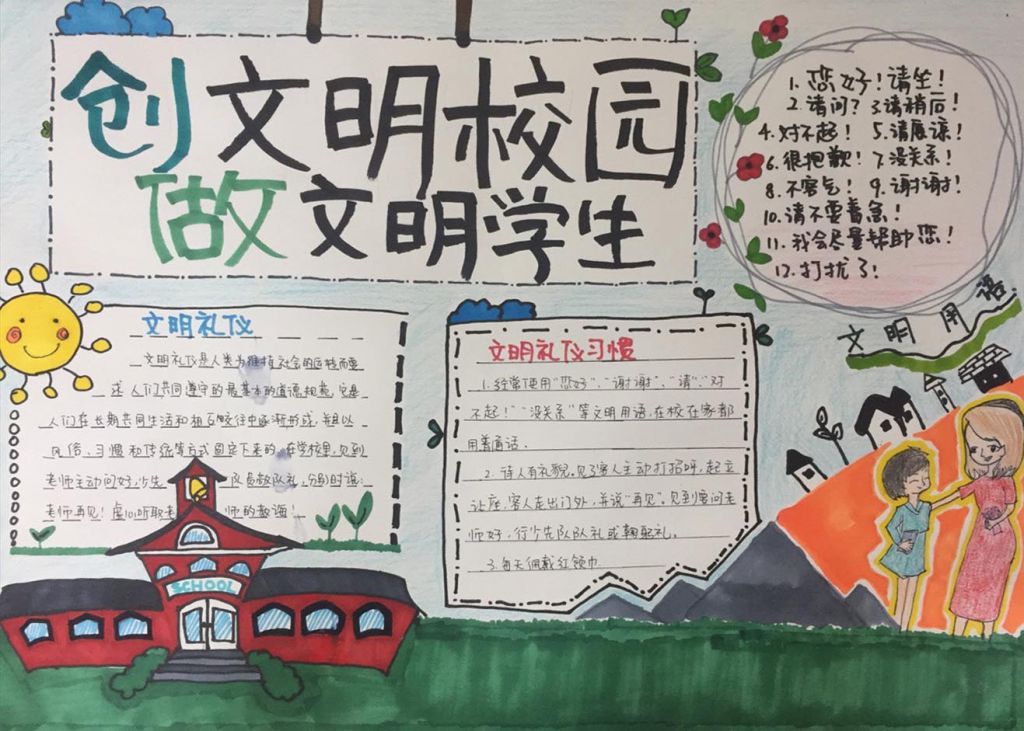 创文明校园
做文明学生
1.您好！请坐！
2.请问？3.请稍后！
4.对不起！ 5.请原谅！
6.很抱歉！ 7.没关系！
8.不客气！ 9.谢谢！
10.请不要着急！
11.我会尽量帮助您！
12.打扰了！
文明用语
文明礼仪
文明礼仪是人类为维持社会的运转而要
求人们共同遵守的最基本的道德规范，它是
人们在长期共同生活和相互交往中逐渐形成，并且以
风俗、习惯和传统等方式固定下来的。在学校里，见到
老师主动问好，少先 队员敬队礼，分别时说：
老师再见！虚心听取老 师的教诲！
文明礼仪习惯
1.经常使用“您好”、“谢谢”、“请”、“对
不起！”“没关系”等文明用语，在校在家都
用普通话。
2.待人有礼貌，见客人主动打招呼，起立
让座，客人走出门外，并说“再见”。见到要问老
师好，行少先队队礼或鞠躬礼。
3.每天佩戴红领巾
SCHOOL